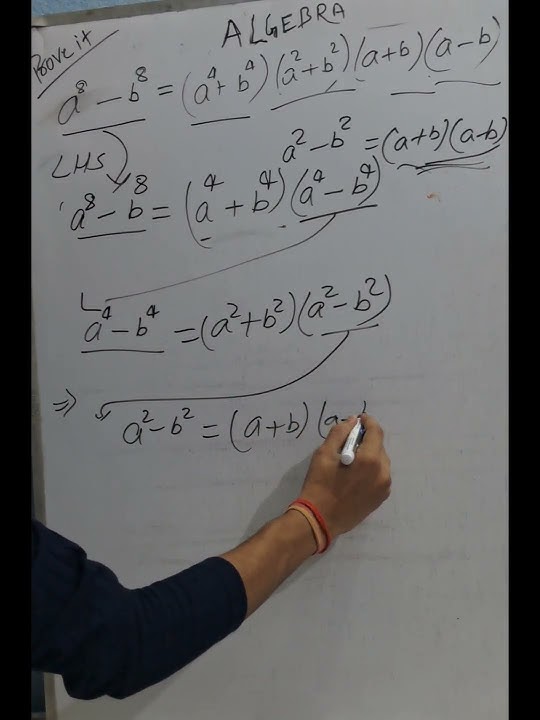 ALGEBRA
Prove it
a⁸ - b⁸ = (a⁴ + b⁴)(a² + b²)(a + b)(a - b)
a² - b² = (a + b)(a - b)
LHS
a⁸ - b⁸ = (a⁴ + b⁴)(a⁴ - b⁴)
a⁴ - b⁴ = (a² + b²)(a² - b²)
⇒ a² - b² = (a + b)(a -